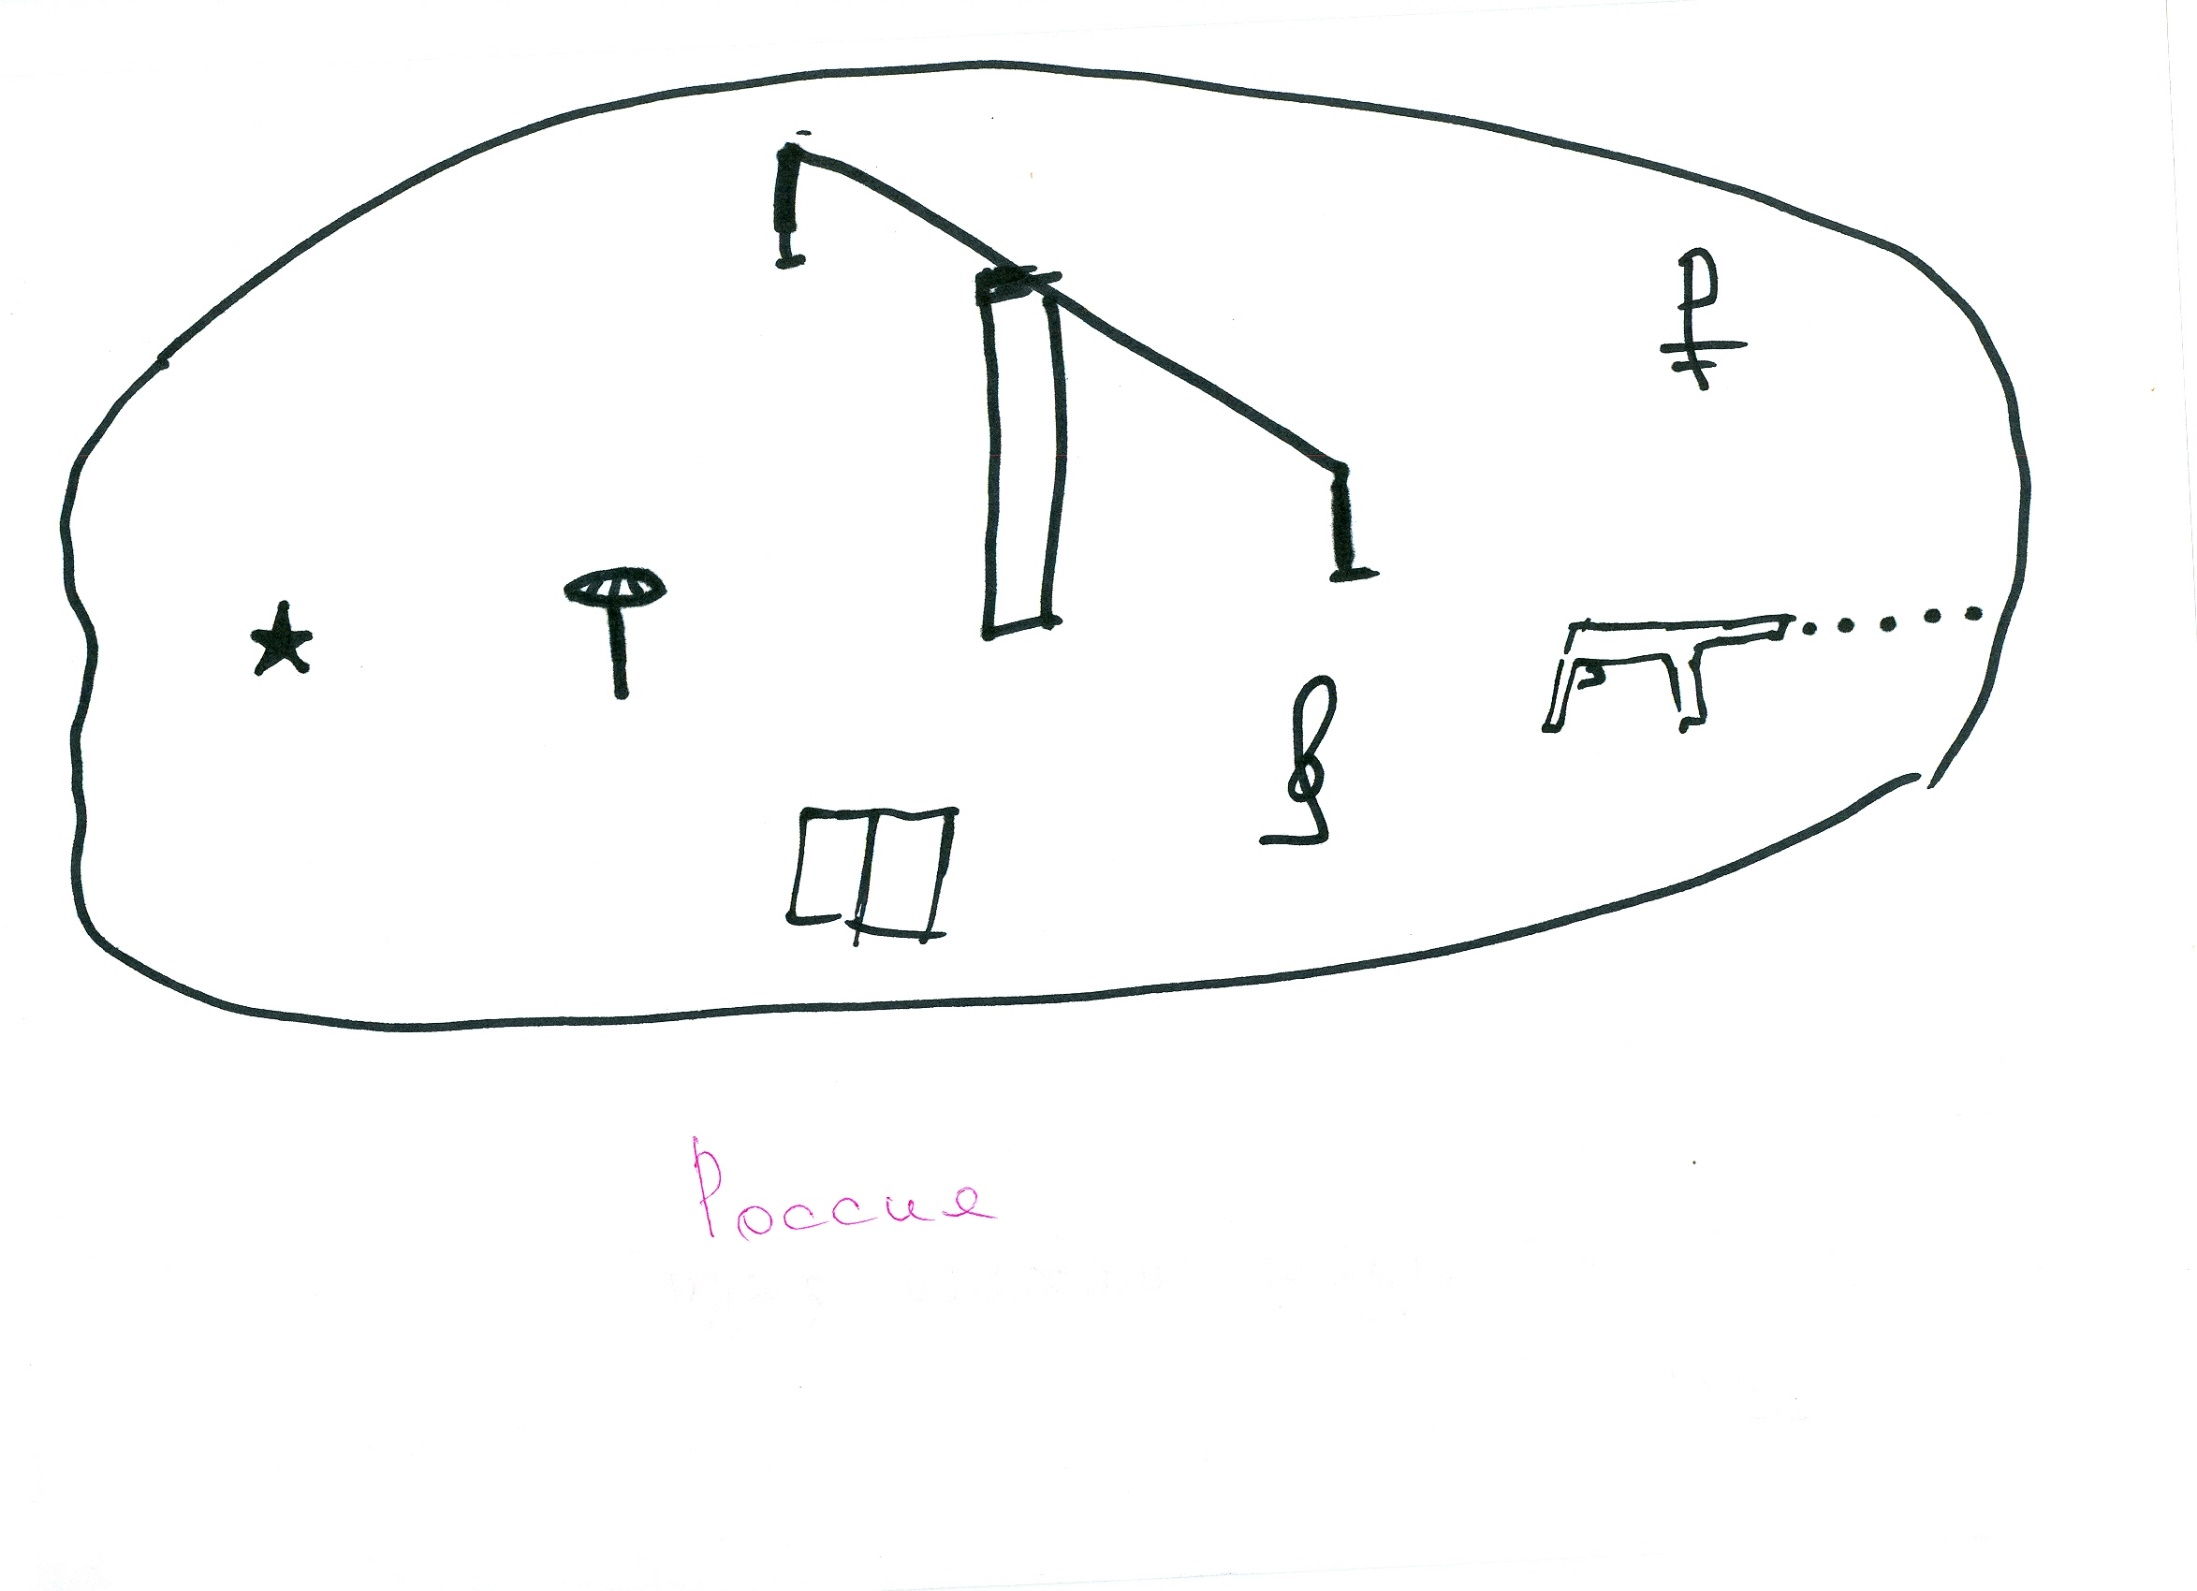 ₽
Россия